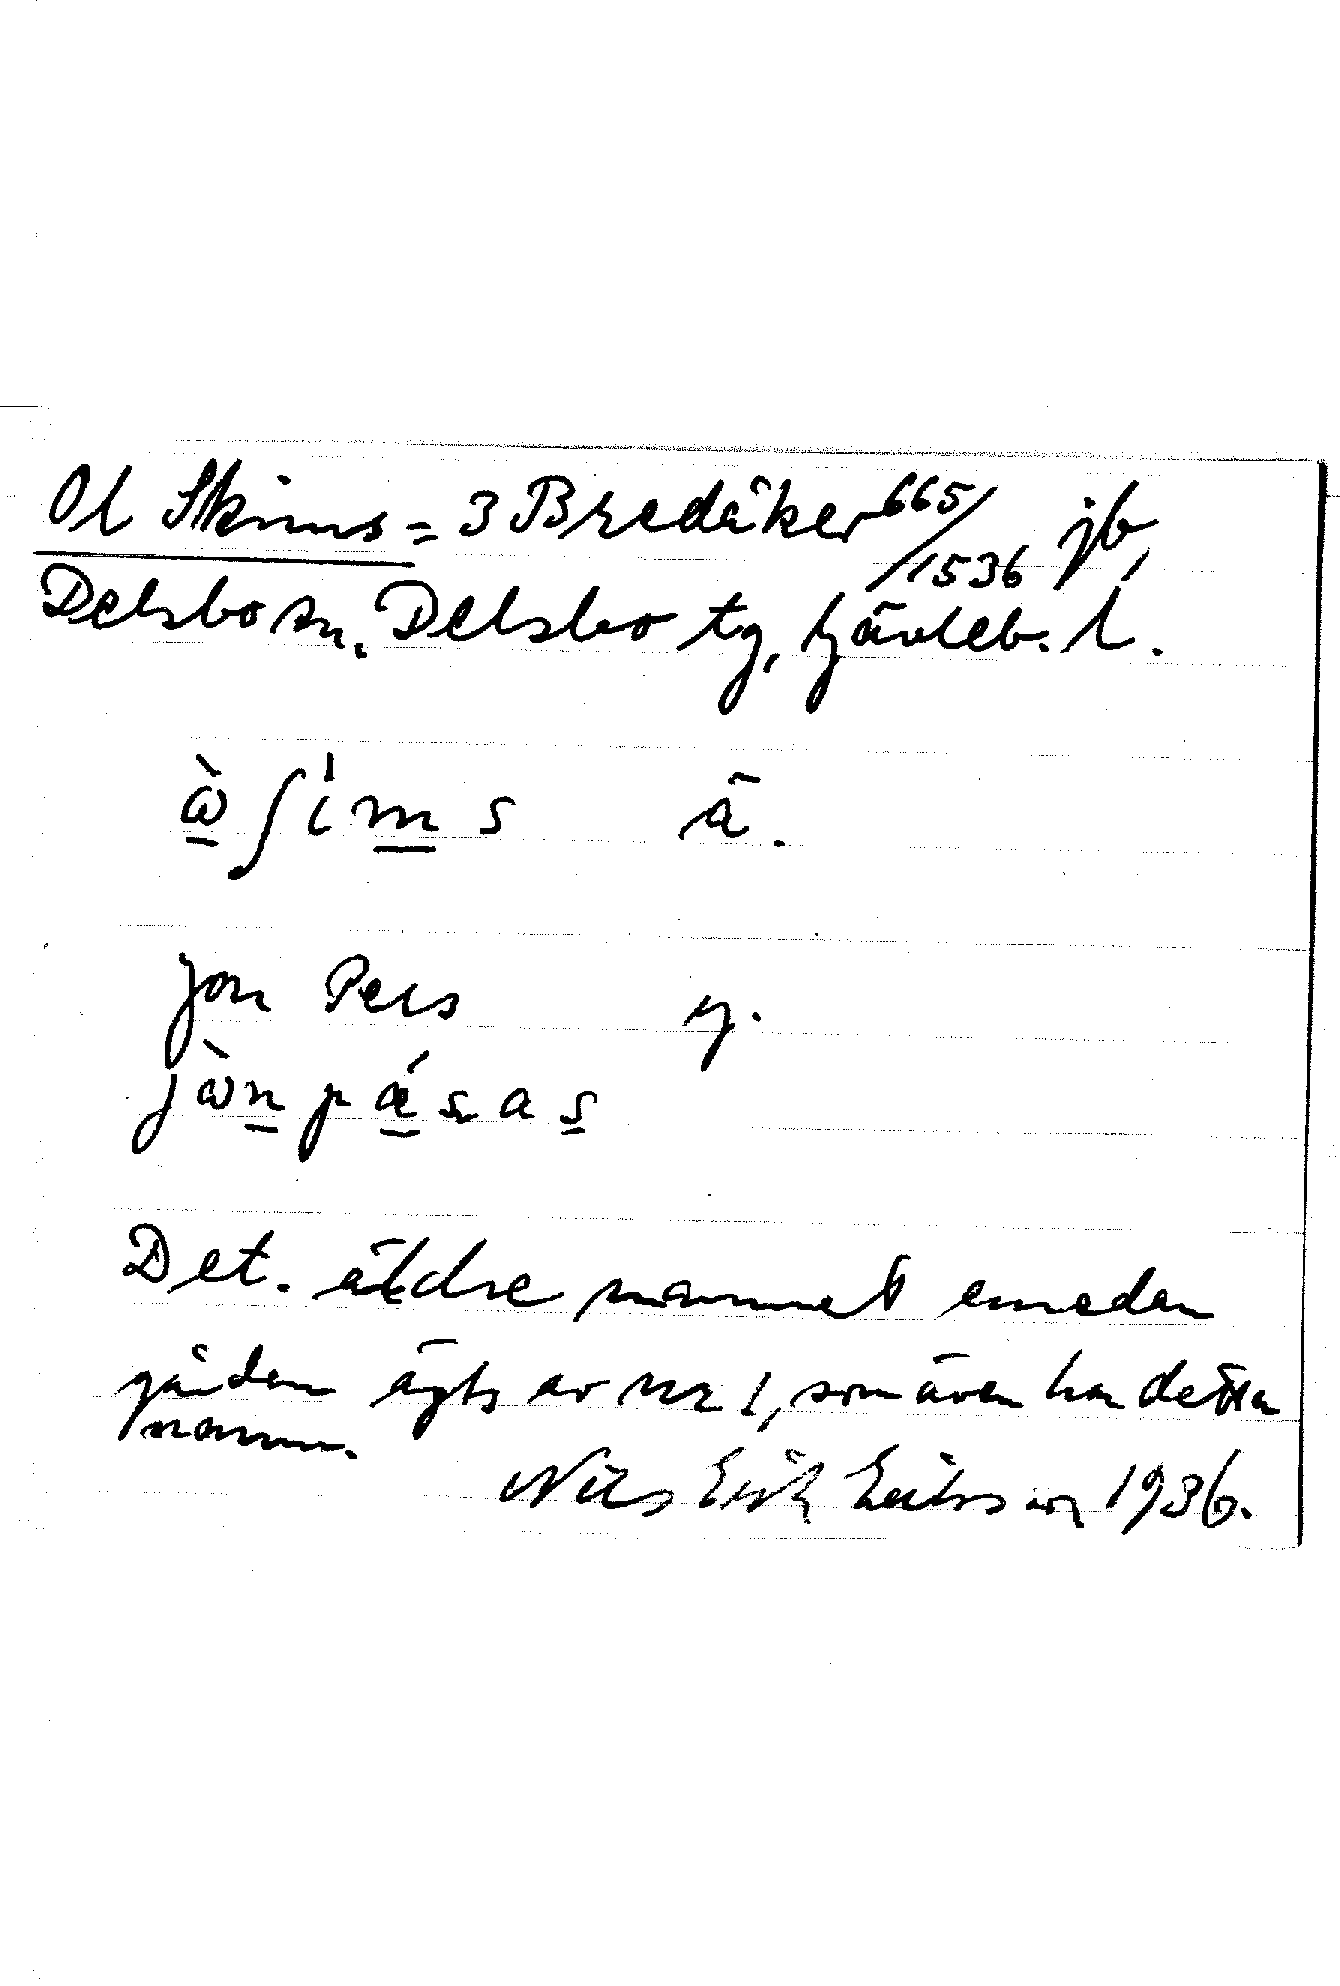 Ol Skims = 3 Bredåker 665/1536 jb,
Delsbo sn. Delsbo tg, Gävleb. l.
ɷ̀ ʃ i m s ä.
Jon Pers y.
j ɷ̀ n p ǽ s a s
Det. äldre namnet emedan
gården ägts av nr 1, som även har detta
namn.
Nils Erik Eriksson 1936.